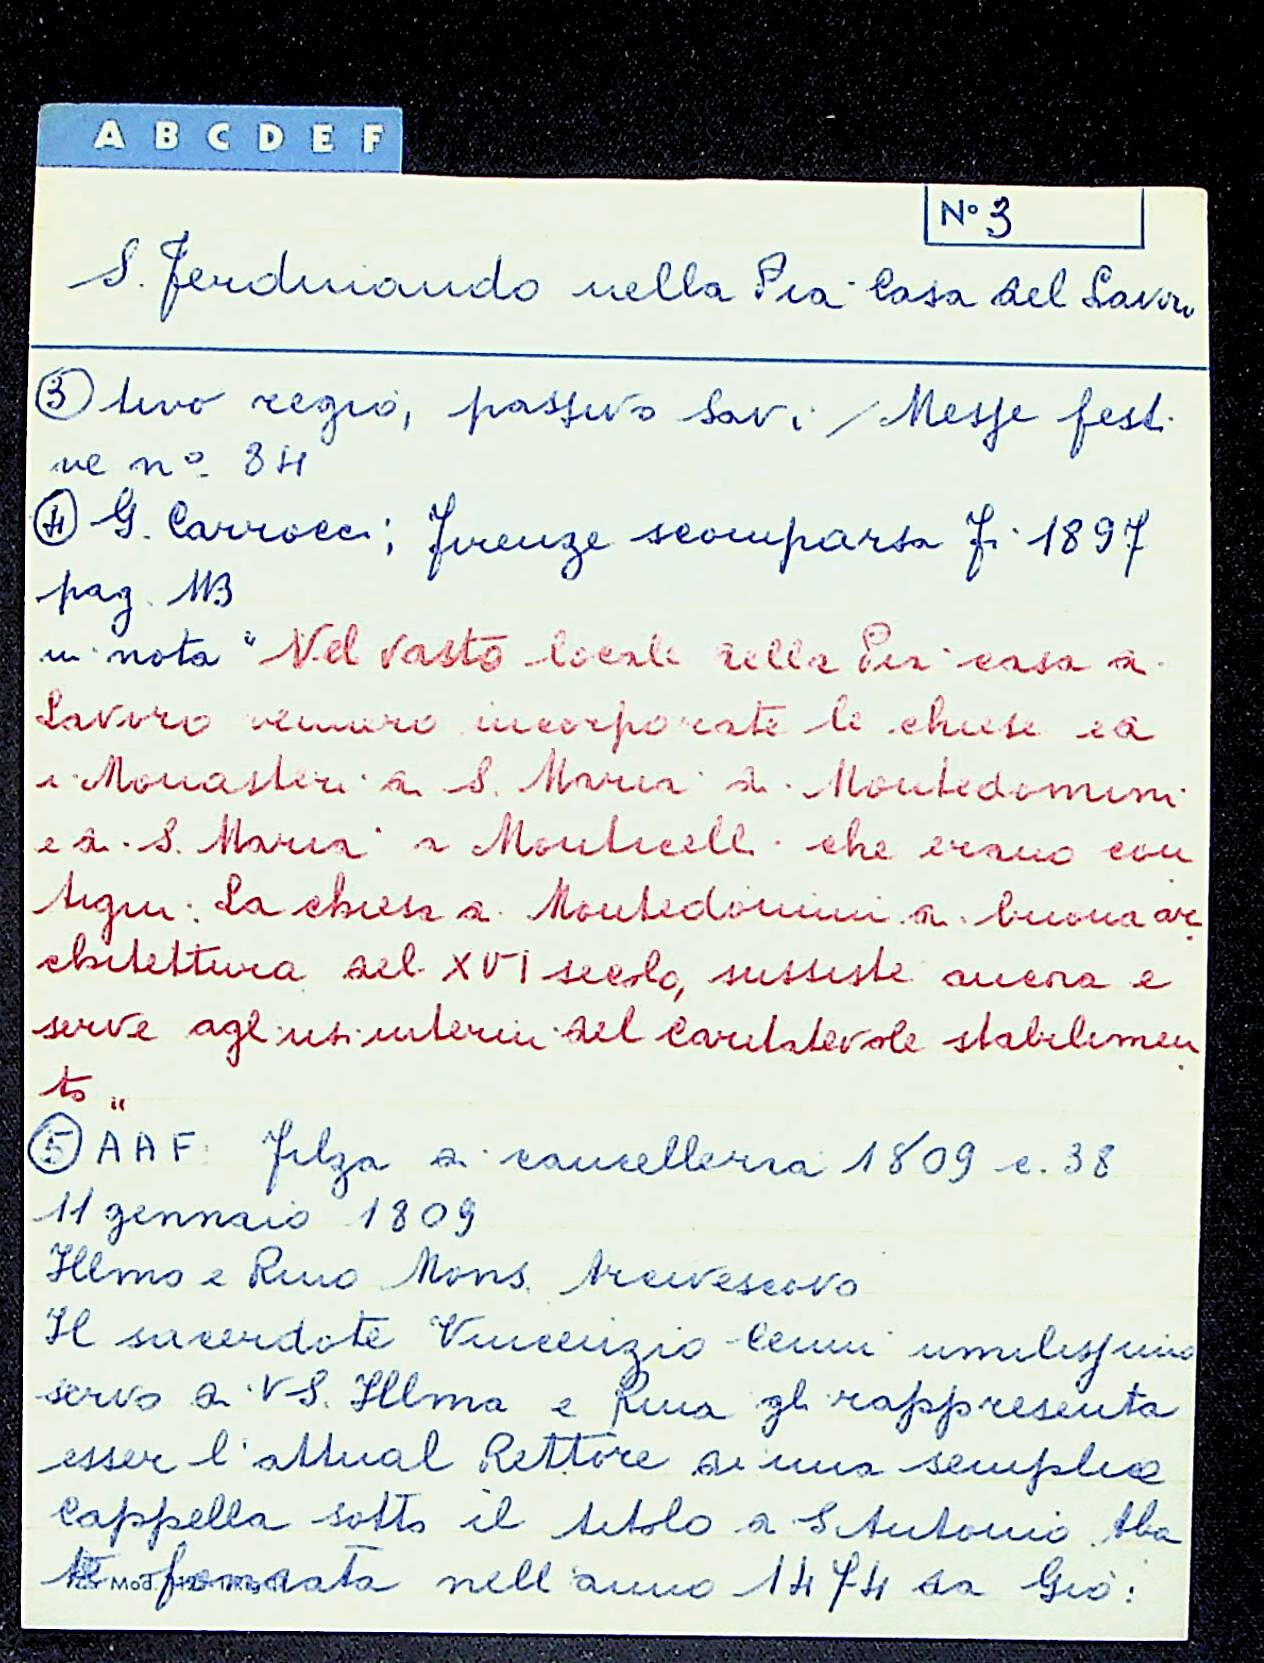 A B C D E F
Nº 3
S. Ferdinando nella Pia Casa del Lavoro
③ tivo regio, passivo Savi / Messe festi
ve nº 84
④ G. Carrocci; Firenze scomparsa Fi 1897
pag. 113
in nota "Nel vasto locale della Pia casa di
Lavoro vennero incorporate le chiese ed
i Monasteri di S. Maria di Montedomini
e di S. Maria a Monticelli che erano con
tigui. La chiesa di Montedomini di buona ar
chitettura del XVI secolo, sussiste ancora e
serve agli usi interni del caritatevole stabilimen
to "
⑤ A A F: Filza di cancelleria 1809 c. 38
11 gennaio 1809
Illmo e Rmo Mons. Arcivescovo
Il sacerdote Vincenzio Cenni umilissimo
servo di VS. Illma e Rma gli rappresenta
esser l'attual Rettore di una semplice
Cappella sotto il titolo di S Antonio Aba
te fondata nell'anno 1474 da Gio: